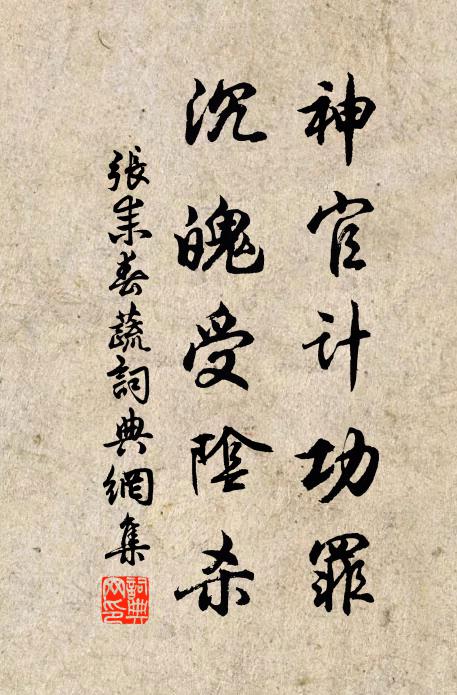 神官计功罪
沉魄受陰杀
張耒春蔬詞典網集
詞典
网印